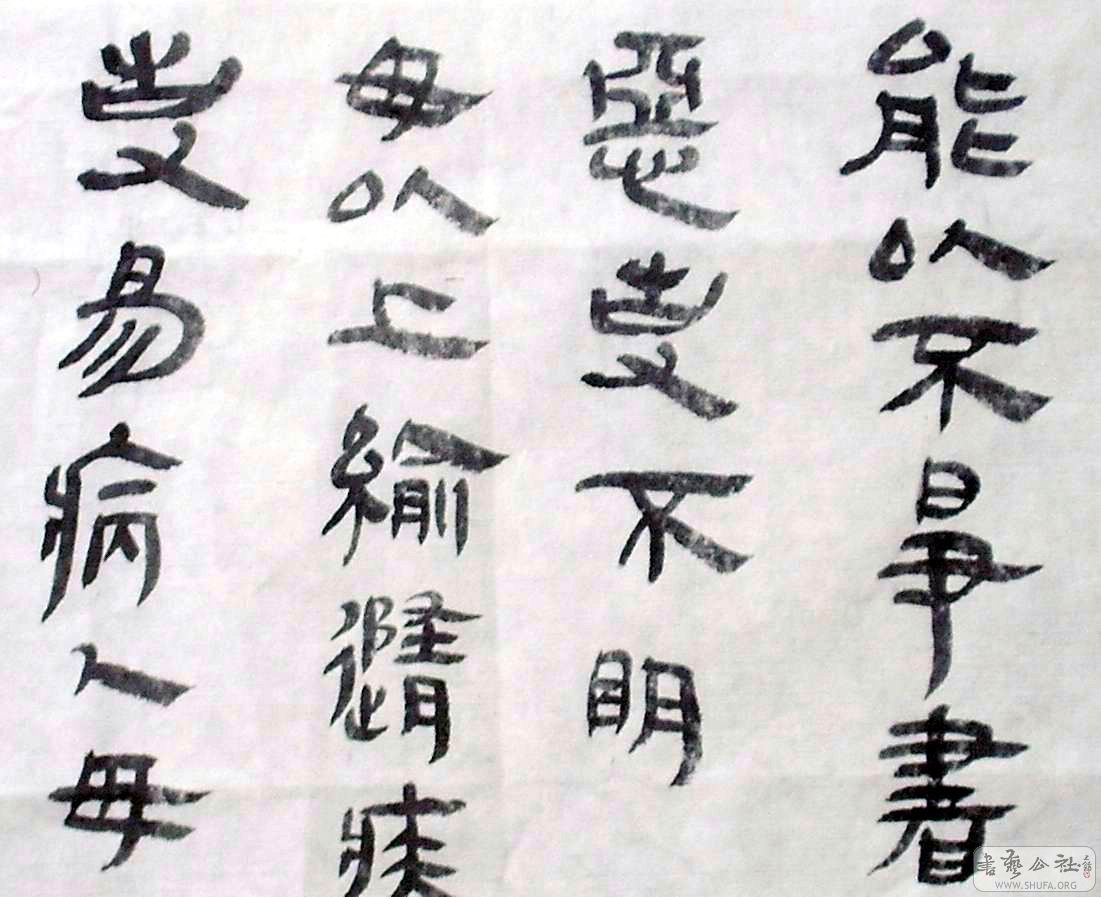 能以不書
惡不明
毋以上緰隨
易病人毋
書藝公社
WWW.SHUFA.ORG